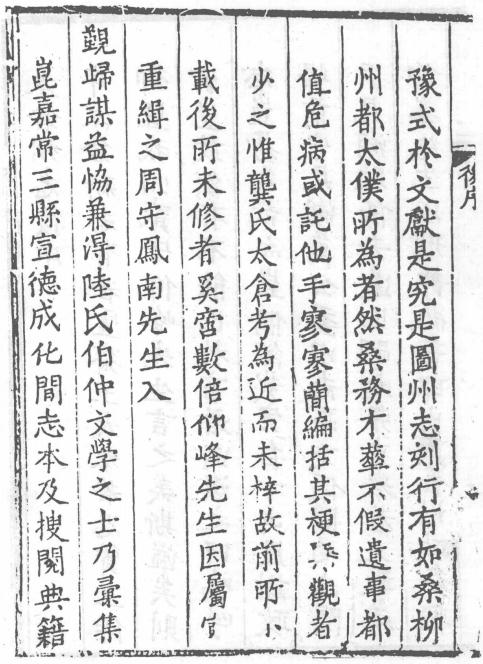 後序
豫式扵文獻是究是圖州志刻行有如桑柳
州都太僕所為者然桑務才藝不假遺事都
值危病或託他手寥寥蕳編括其梗槩觀者
少之惟龔氏太倉考為近而未梓故前所
載後所未修者奚啻數倍仰峰先生因屬官
重緝之周守鳳南先生入
覲歸謀益恊兼淂陸氏伯仲文學之士乃彚集
崑嘉常三縣宣德成化間志本及搜閱典籍